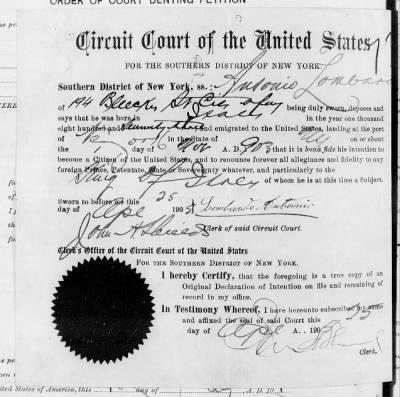 ORDER OF COURT DENYING PETITION
Circuit Court of the United States
FOR THE SOUTHERN DISTRICT OF NEW YORK.
Southern District of New York, ss.: Antonio Lombardo
of 194 Bleecker St City being duly sworn, deposes and
says that he was born in Italy in the year one thousand
eight hundred and seventy three and emigrated to the United States, landing at the port
of N. York in the State of N Y on or about
the 1 day of Nov A. D. 190 that it is bona fide his intention to
become a Citizen of the United States, and to renounce forever all allegiance and fidelity to any
foreign Prince, Potentate, State or Sovereignty whatever, and particularly to the
King of Italy of whom he is at this time a Subject.
Sworn to before me this 25
day of Ape 1905 Lombardo Antonio
John A Shields Clerk of said Circuit Court.
Clerk's Office of the Circuit Court of the United States
FOR THE SOUTHERN DISTRICT OF NEW YORK.
I hereby Certify, that the foregoing is a true copy of an
Original Declaration of Intention on file and remaining of
record in my office.
In Testimony Whereof, I have hereunto subscribed my name
and affixed the seal of said Court this 25
day of Ape A.. 190
Clerk.
ited States of America, this day of A. D. 19